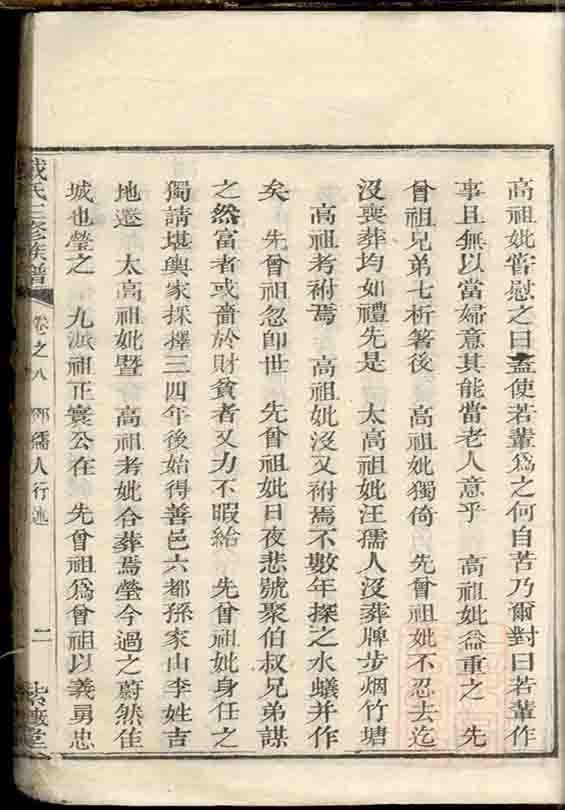 高祖妣嘗慰之曰盍使若輩爲之何自苦乃爾對曰若輩作
事且無以當婦意其能當老人意乎　高祖妣益重之　先
曾祖兄弟七析箸後　高祖妣獨倚　先曾祖妣不忍去迄
沒喪葬均如禮先是　太高祖妣汪孺人沒葬牌步烟竹塘
　高祖考祔焉　高祖妣沒又祔焉不數年探之水蟻并作
矣　先曾祖忽卽世　先曾祖妣日夜悲號聚伯叔兄弟謀
之然富者或嗇於財貧者又力不暇給　先曾祖妣身任之
獨請堪輿家採擇三四年後始得善邑六都孫家山李姓吉
地遷　太高祖妣暨　高祖考妣合葬焉瑩今過之蔚然佳
城也瑩之　九派祖正寰公在　先曾祖爲曾祖以義勇忠
戴氏三修族譜　卷之八　孺人行述　二　紫薇堂